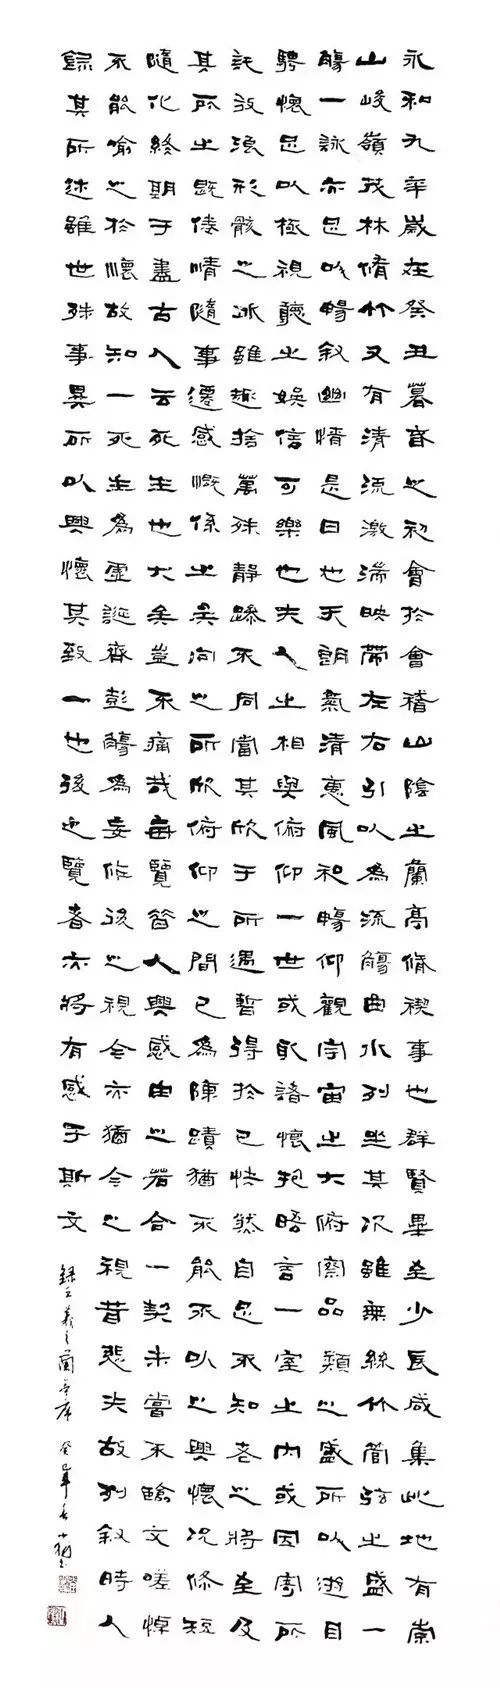 永和九年歲在癸丑暮春之初會於會稽山陰之蘭亭脩禊事也群賢畢至少長咸集此地有崇
山峻嶺茂林脩竹又有清流激湍映帶左右引以為流觴曲水列坐其次雖無絲竹管弦之盛一
觴一詠亦足以暢敘幽情是日也天朗氣清惠風和暢仰觀宇宙之大俯察品類之盛所以遊目
騁懷足以極視聽之娛信可樂也夫人之相與俯仰一世或取諸懷抱晤言一室之內或因寄所
託放浪形骸之外雖趣捨萬殊靜躁不同當其欣于所遇暫得於己快然自足不知老之將至及
其所之既倦情隨事遷感慨係之矣向之所欣俯仰之間已為陳蹟猶不能不以之興懷況脩短
隨化終期于盡古人云死生也大矣豈不痛哉每覽昔人興感由之若合一契未嘗不臨文嗟悼
不能喻之於懷故知一死生為虛誕齊彭觴為妄作後之視今亦猶今之視昔悲夫故列敘時人
錄其所述雖世殊事異所以興懷其致一也後之覽者亦將有感于斯文
錄王羲之蘭亭序 癸巳年春